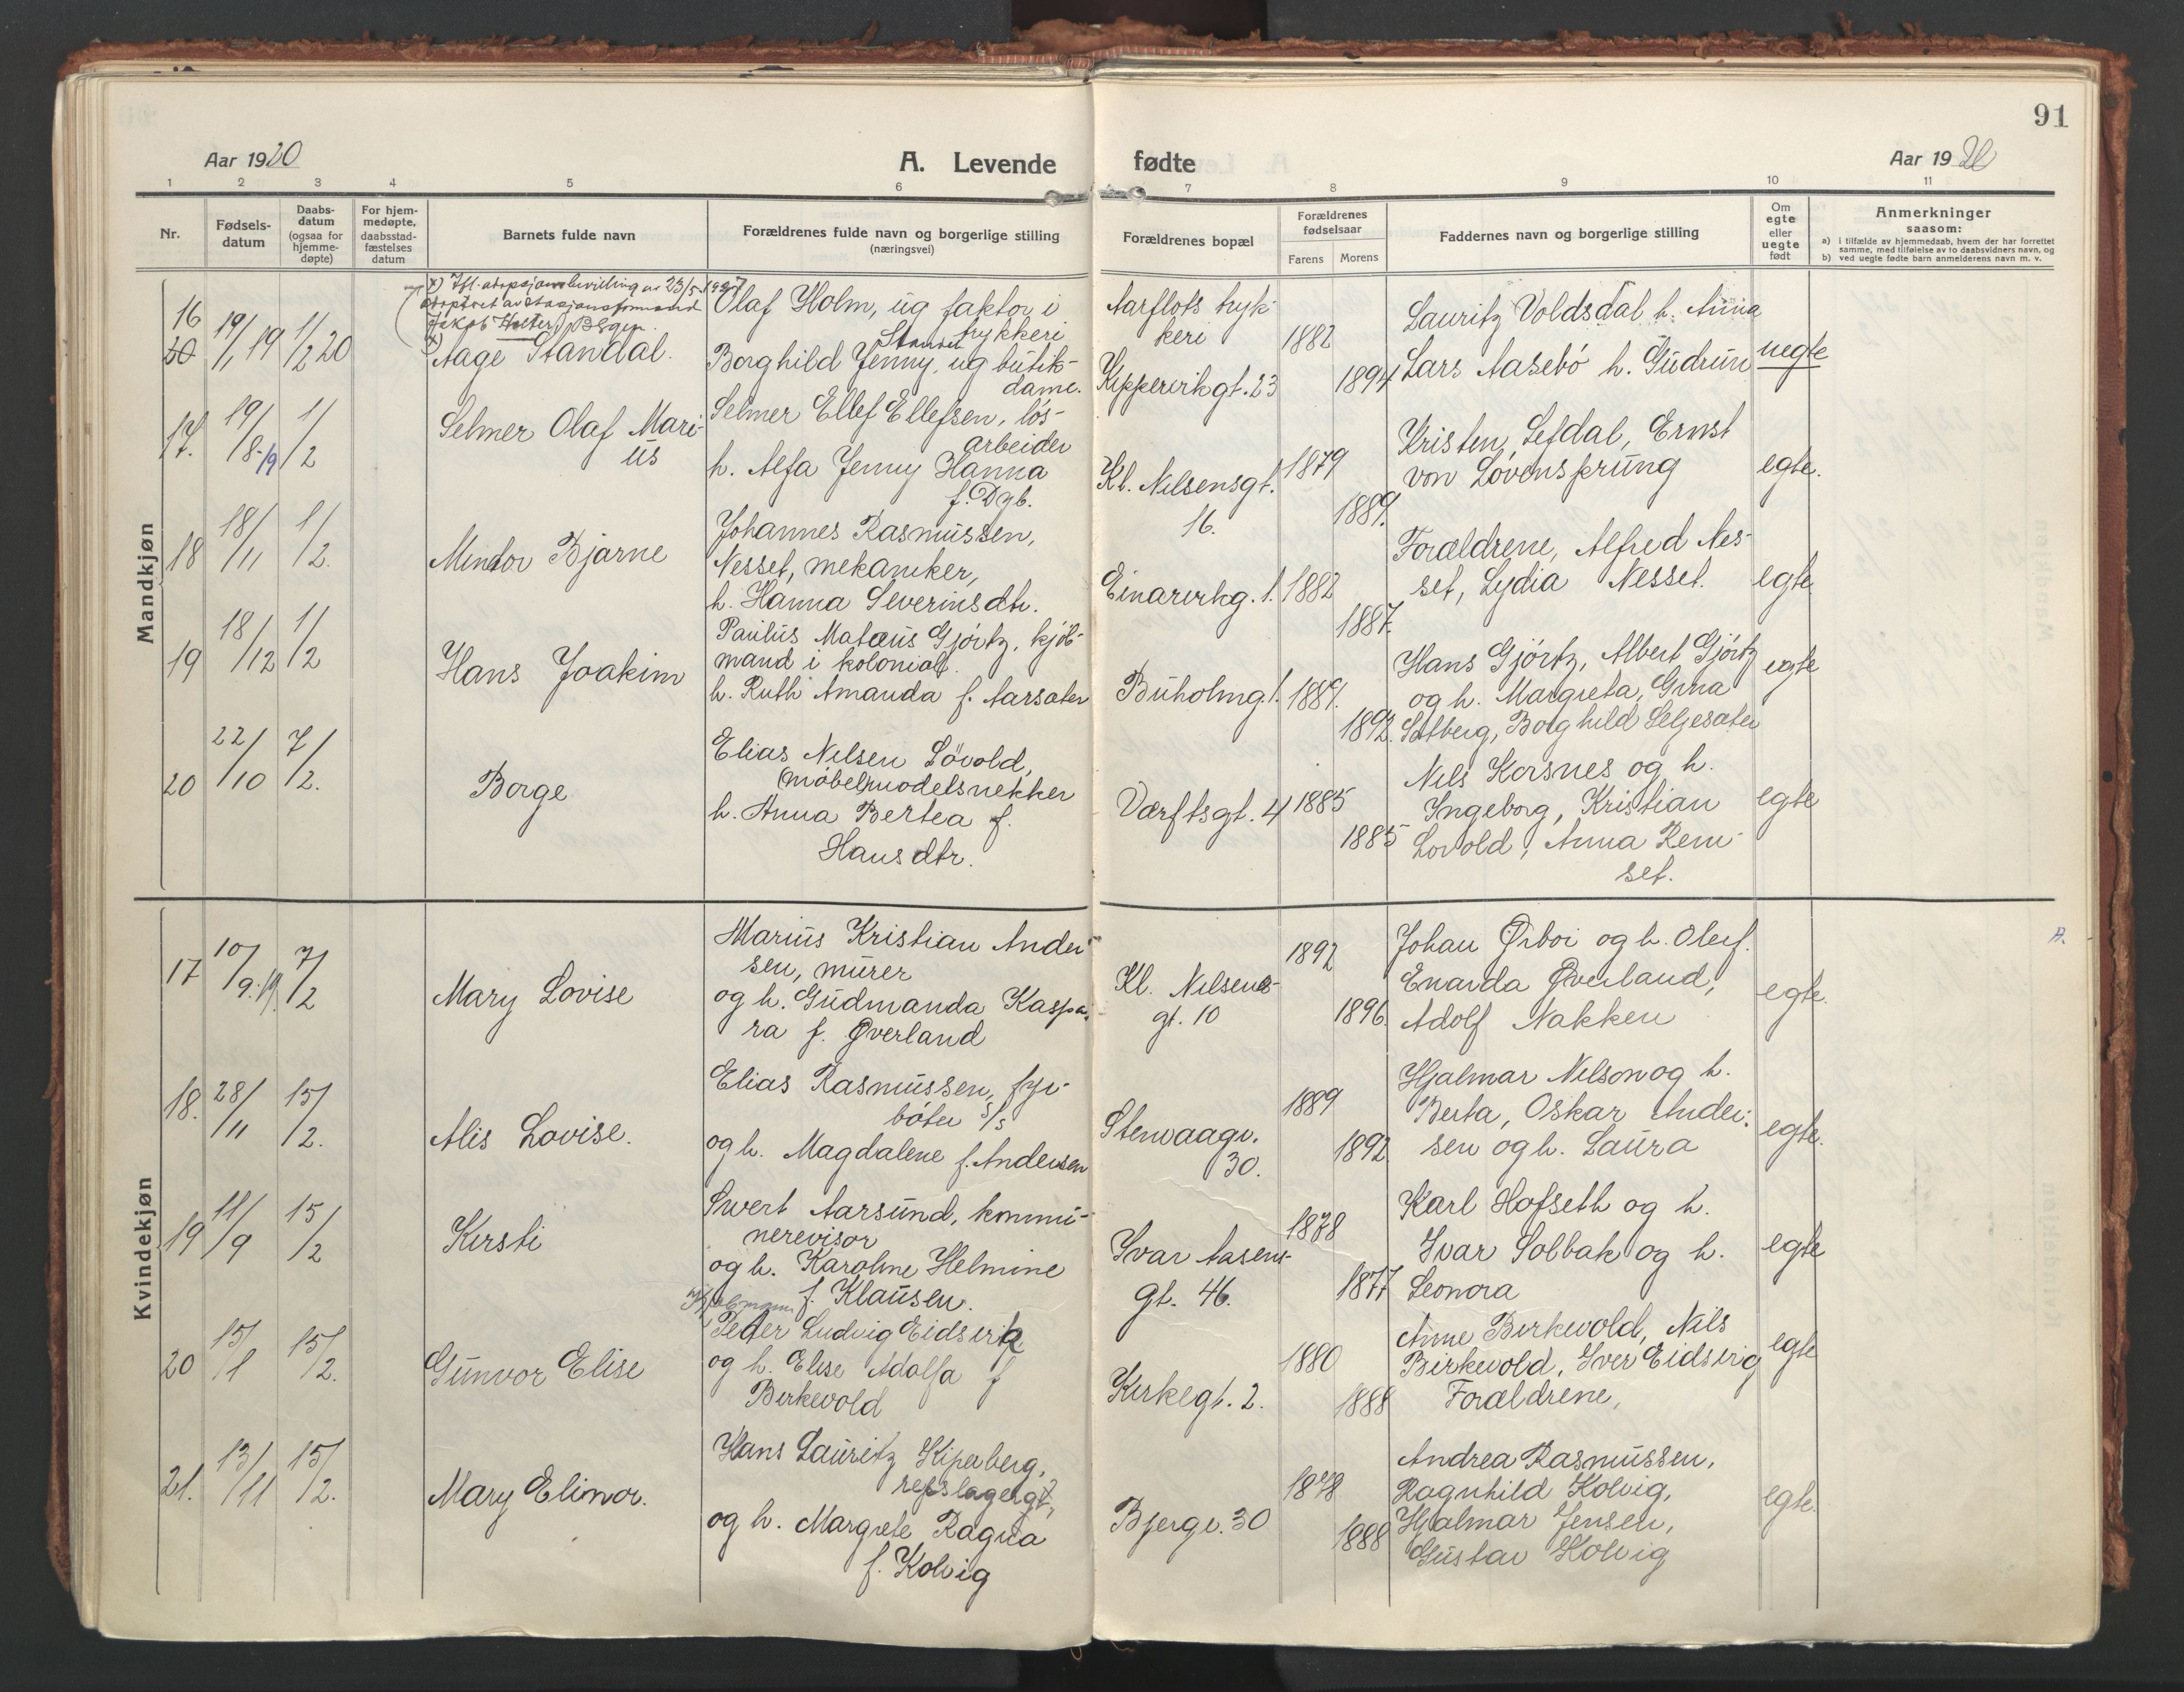 91
Aar 1920
A. Levende fødte
Aar 1920
1 2 3 4 5 6 7 8 9 10 11
Nr.
Fødsels-
datum
Daabs-
datum
(ogsaa for
hjemme-
døpte)
For hjem-
medøpte,
daabsstad-
fæstelses
datum
Barnets fulde navn
Forældrenes fulde navn og borgerlige stilling
(næringsvei)
Forældrenes bopæl
Forældrenes
fødselsaar
Farens Morens
Faddernes navn og borgerlige stilling
Om
egte
eller
uegte
født
Anmerkninger
saasom:
a) i tilfælde av hjemmedaab, hvem der har forrettet
samme, med tilføielse av to daabsvidners navn, og
b) ved uegte fødte barn anmelderens navn m. v.
Mandkjøn
x) Ifl. adopsjonsbevilling av 23/5 1927
adoptert av stasjonsformand
Jakob Holter, Bergen.
16
20
19/1 19
1/2 20
x) Aage Standal.
Olaf Holm, ug faktor i
trykkeri
Standal
Borghild Jenny, ug butik-
dame.
Aarflots tryk-
keri
Kippervikgt. 23
1882
1894
Lauritz Voldsdal h. Anna
Lars Aasebö h. Gudrun
uegte
17.
19/8-19
1/2
Selmer Olaf Mari-
us
Selmer Ellef Ellefsen, løs-
arbeider
h. Alfa Jenny Hanna
f. Dgb.
Kl. Nilsensgt.
16.
1879
1889.
Kristen Sefdal, Ernst
von Lövensprung
egte.
18
18/11
1/2.
Mindor Bjarne
Johannes Rasmussen,
Nesset, mekaniker,
h. Hanna Severinsdtr.
Einarvikg. 1.
1882
1887.
Forældrene, Alfred Nes-
set, Lydia Nesset.
egte
19
18/12
1/2
Hans Joakim
Paulus Mataus Gjörtz, kjöb-
mand i kolonial.
h. Ruth Amanda f. Aarsæter
Buholmg. 1.
1889.
1892.
Hans Gjörtz, Albert Gjörtz
og h. Margreta, Gina
Solberg, Borghild Seljesæter
egte
20
22/10
7/2.
Borge
Elias Nilsen Lövold,
(møbel)modelsnekker
h. Anna Bertea f.
Hansdtr.
Værftsgt. 4
1885
1885
Nils Korsnes og h.
Ingeborg, Kristian
Lovold, Anna Rem-
set.
egte
Kvindekjøn
17
10/9.19.
7/2
Mary Lovise
Marius Kristian Ander-
sen, murer
og h. Gudmanda Kaspa-
ra f. Øverland
Kl. Nilsens-
gt. 10
1892
1896.
Johan Ørboi og h. Oluf.
Enarda Øverland,
Adolf Nakken
egte.
A.
18.
28/11
15/2.
Alis Lovise.
Elias Rasmussen, fyr-
böter S/S
og h. Magdalene f. Andersen
Stenvaagv.
30.
1889
1892
Hjalmar Nilson og h.
Berta, Oskar Ander-
sen og h. Laura
egte.
19
11/9
15/2
Kirsti
Sivert Aarsund, kommu-
nerevisor
og h. Karoline Helmine
f. Klausen.
Ivar Aasens-
gt. 46.
1878
1877
Karl Hofseth og h.
Ivar Solbak og h.
Leonora
egte
20
15/1
15/2.
Gunvor Elise
Peder Ludvig Eidsvik
og h. Elise Adolfa f
Birkevold
Kirkegt. 2.
1880
1888
Anne Birkevold, Nils
Birkevold, Iver Eidsvig
Forældrene,
egte
21.
13/11
15/2.
Mary Elinor.
Hans Lauritz Kiperberg,
repslagergt,
og h. Margrete Ragna
f. Kolvig
Bjergv. 30
1878
1888
Andrea Rasmussen,
Ragnhild Kolvig,
Hjalmar Jensen,
Gustav Kolvig
egte.